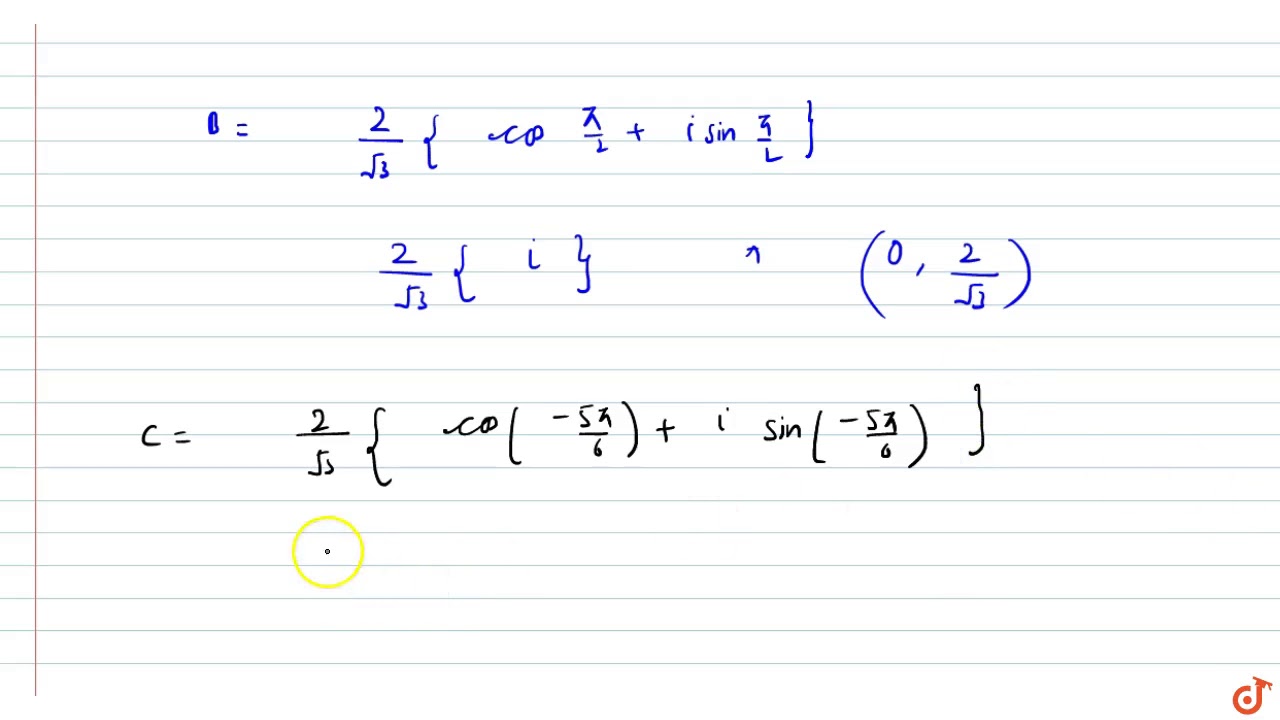 B = 2/√3 { cos π/2 + i sin π/2 }
2/√3 { i } (0, 2/√3)
C = 2/√3 { cos(-5π/6) + i sin(-5π/6) }